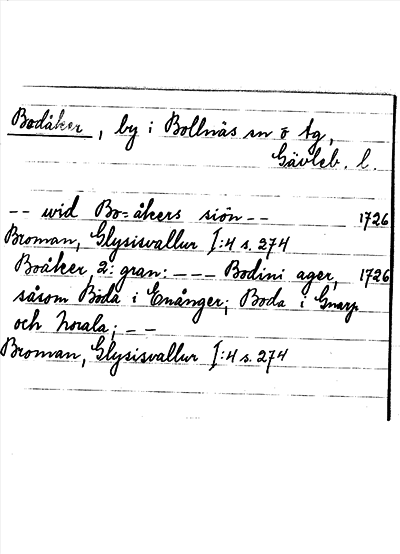 Bodåker, by i Bollnäs sn o tg,
Gävleb. l.
-- wid Bo=åkers siön -- 1726
Broman, Glysisvallur I:4 s. 274
Boåker, 2: gran: --- Bodini ager, 1726
såsom Boda i Enånger; Boda i Gnarp
och Norala; --
Broman, Glysisvallur I:4 s. 274